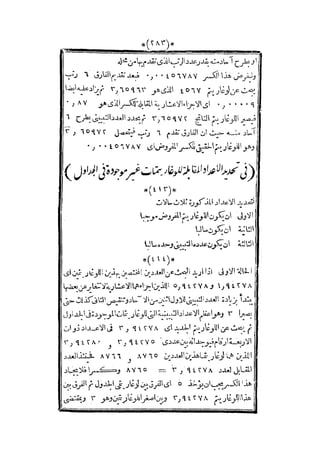 *(٢٨٣)*
او بطرح آحاد منه بقدر عدد الرتب الذى تقدم بها من شماله
ولنفرض هذا الكسر ٠٫٠٠٤٥٦٧٨٧ فبعد تقديم الفارق ٦ رتب
يبحث عن لوغاريتم ٤٥٦٧ الذى هو ٣٫٦٥٩٦٣ ثم يزاد عليه ايضا
٠٫٠٠٠٠٩ اى الاجزاء الاعشارية المقابلة للكسر الذى هو ٠٫٨٧
فيصير اللوغاريتم الناتج ٣٫٦٥٩٧٢ ثم يحدد العدد البيانى بطرح ٦
آحاد منه حيث ان الفارق تقدم ٦ رتب فيتحصل ٣٫٦٥٩٧٢
وهو اللوغاريتم الحقيقى للكسر المفروض اى ٠٫٠٠٤٥٦٧٨٧
(فى تحديد الأعداد المقابلة للوغاريتمات غير موجودة فى الجداول)
*(٤١٣)*
لتحديد الاعداد المذكورة ثلاث حالات
الاولى ان يكون اللوغاريتم المفروض موجبا
الثانية ان يكون سالبا
الثالثة ان يكون عدده البيانى وحده سالبا
*(٤١٤)*
الحالة الاولى اذا اريد البحث عن العددين المختصين بهذين اللوغاريتمين اى
١٫٩٤٢٧٨ و ٥٫٩٤٢٧٨ اللذين اجزاءهما الاعشارية لا تتغاير عن بعضها
يبتدأ بزيادة العدد البيانى للاول اثنين من الآحاد وتنقيص الثانى كذلك حتى
يصيرا ٣ وهو اعظم الاعداد البيانية التى للوغاريتمات الموجودة فى الجداول
ثم يبحث عن اللوغاريتم الجديد اى ٣٫٩٤٢٧٨ فى الاعداد ذوات
الاربعة ارقام فيوجد انه بين عددى ٣٫٩٤٢٧٥ و ٣٫٩٤٢٨٠
اللذين هما لوغاريتما هذين العددين ٨٧٦٥ و ٨٧٦٦ فحينئذ العدد
المقابل لعدد ٣٫٩٤٢٧٨ = ٨٧٦٥ وكسرا فلايجاد
هذا الكسر يجب ان يؤخذ ٥ اى الفرق بين لوغاريتمى الجدول ثم الفرق بين
هذا اللوغاريتم ٣٫٩٤٢٧٨ وبين اصغر اللوغاريتمين وهو ٣ وبمقتضى